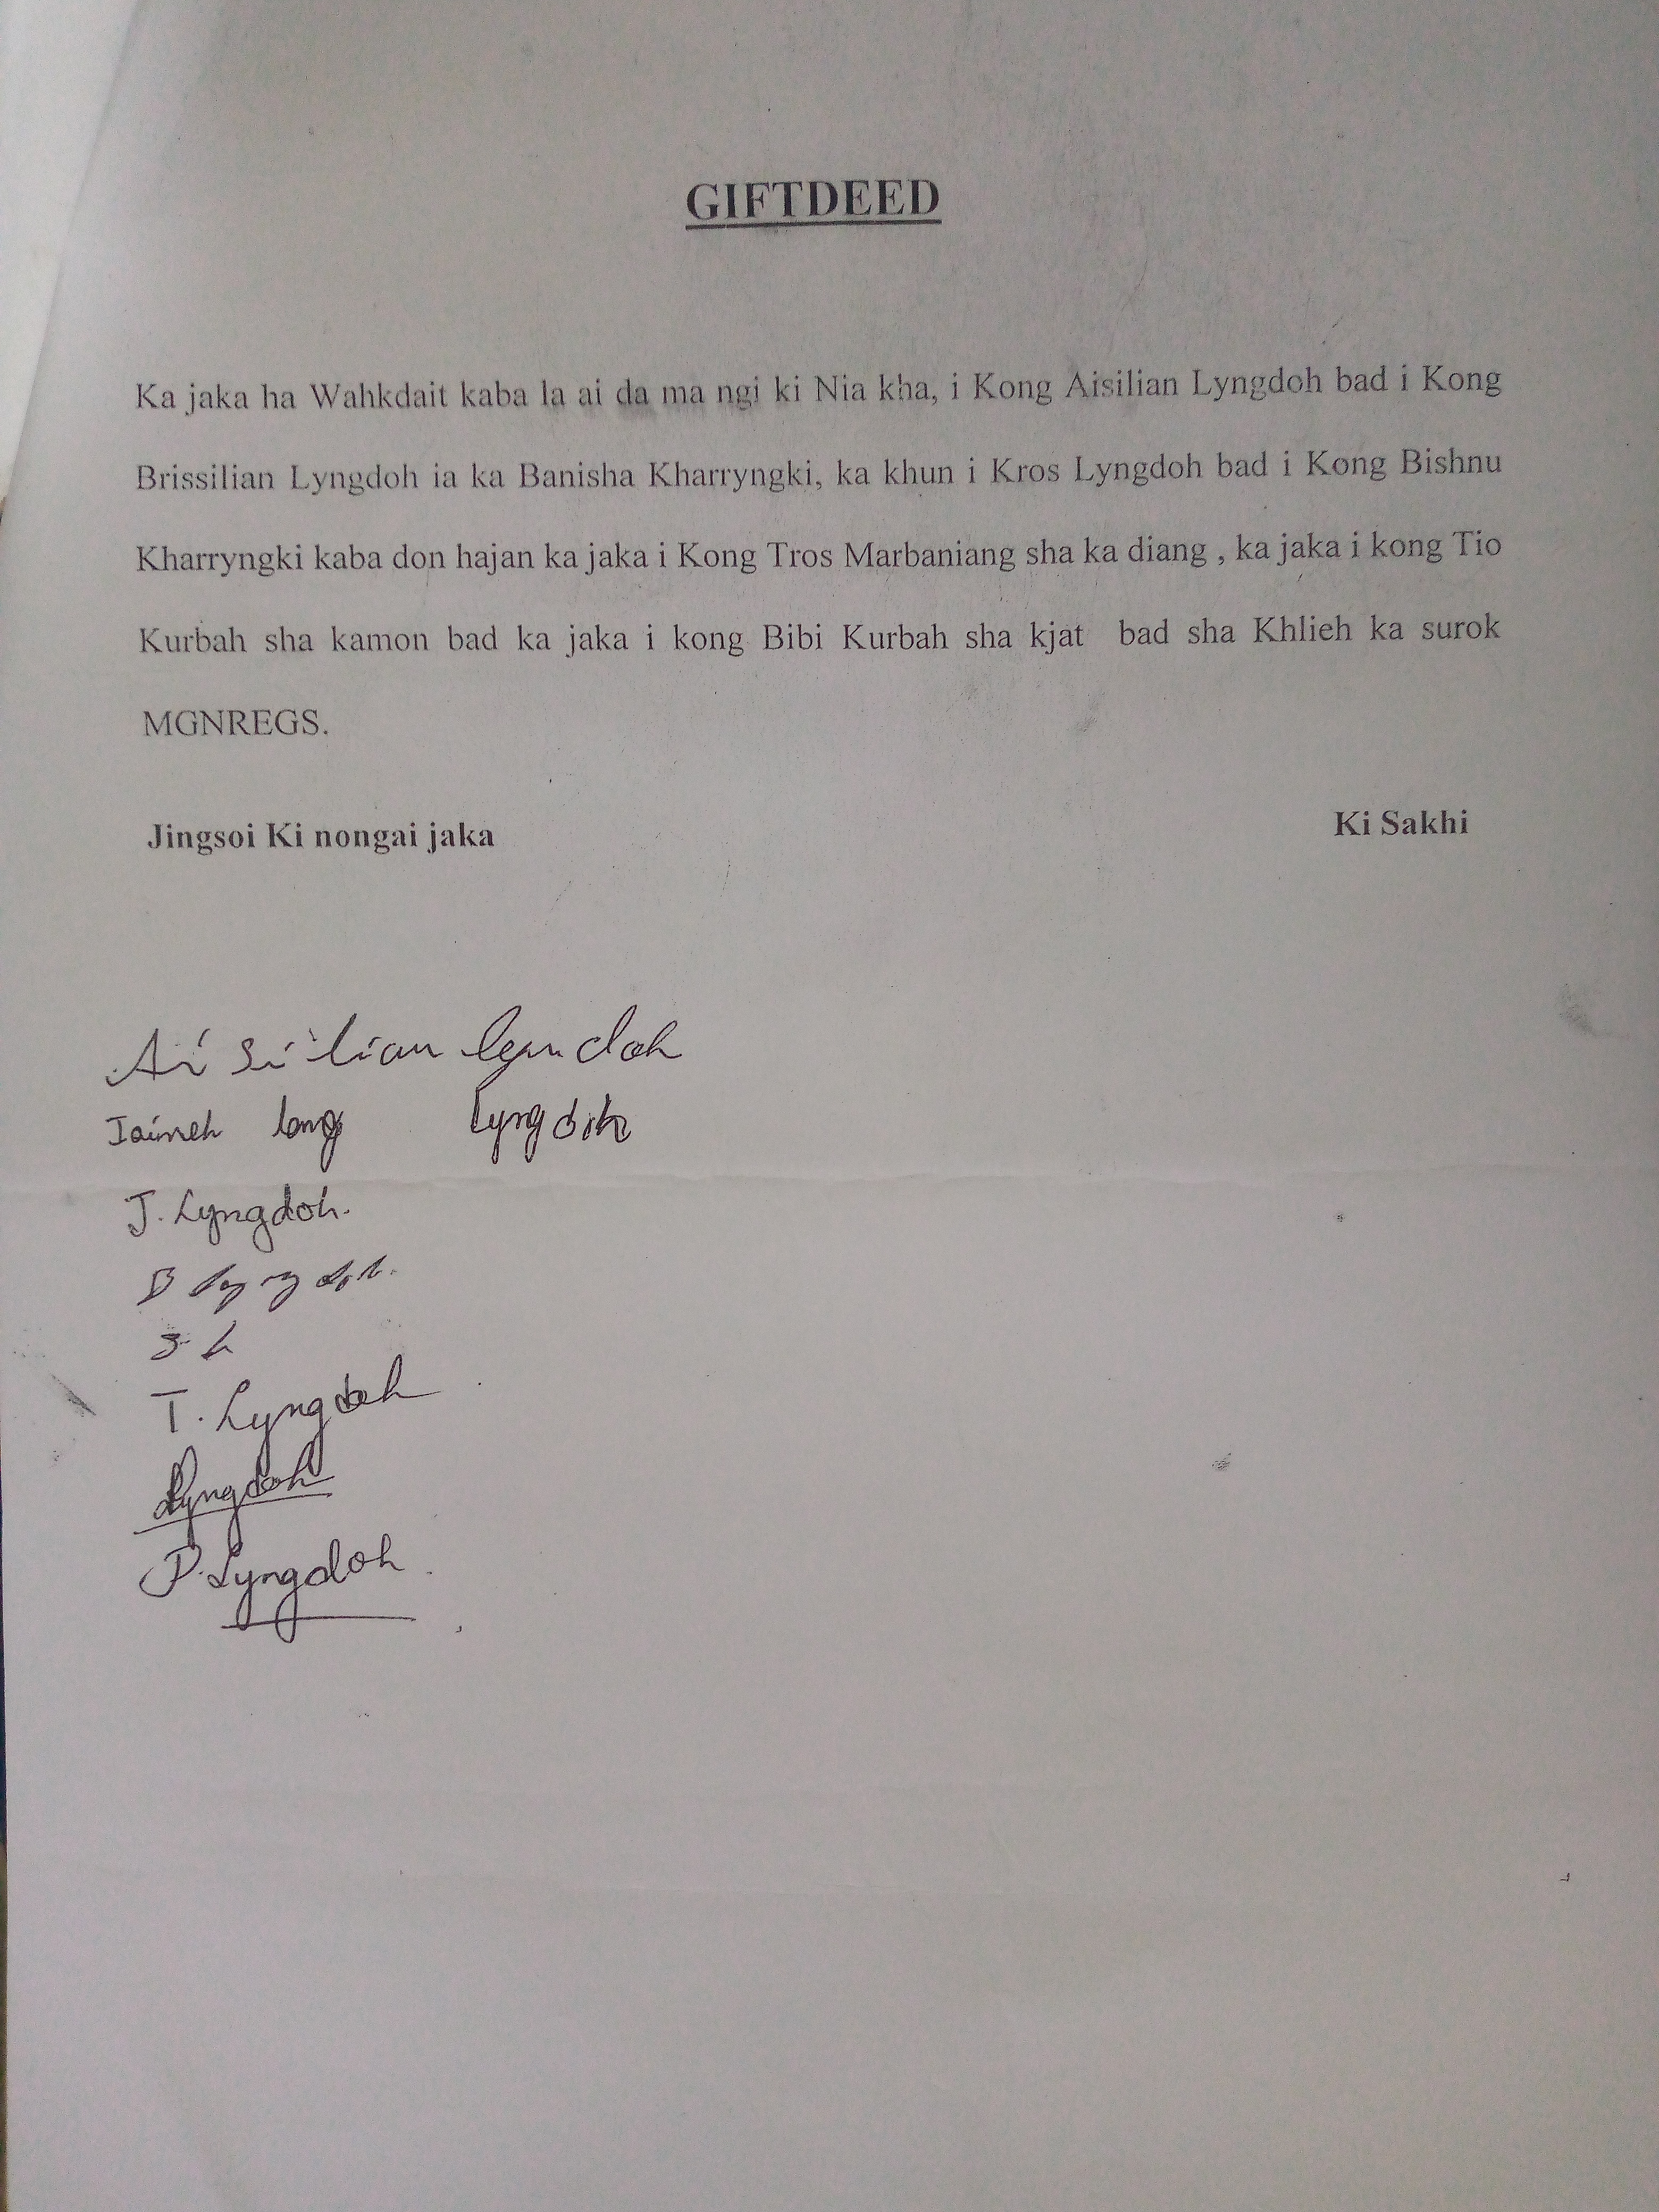 GIFTDEED
Ka jaka ha Wahkdait kaba la ai da ma ngi ki Nia kha, i Kong Aisilian Lyngdoh bad i Kong
Brissilian Lyngdoh ia ka Banisha Kharryngki, ka khun i Kros Lyngdoh bad i Kong Bishnu
Kharryngki kaba don hajan ka jaka i Kong Tros Marbaniang sha ka diang , ka jaka i kong Tio
Kurbah sha kamon bad ka jaka i kong Bibi Kurbah sha kjat bad sha Khlieh ka surok
MGNREGS.
Jingsoi Ki nongai jaka Ki Sakhi
Ai si lian
lang Lyngdoh
J. Lyngdoh.
B Lyngdoh.
T. Lyngdoh
Lyngdoh
P. Lyngdoh